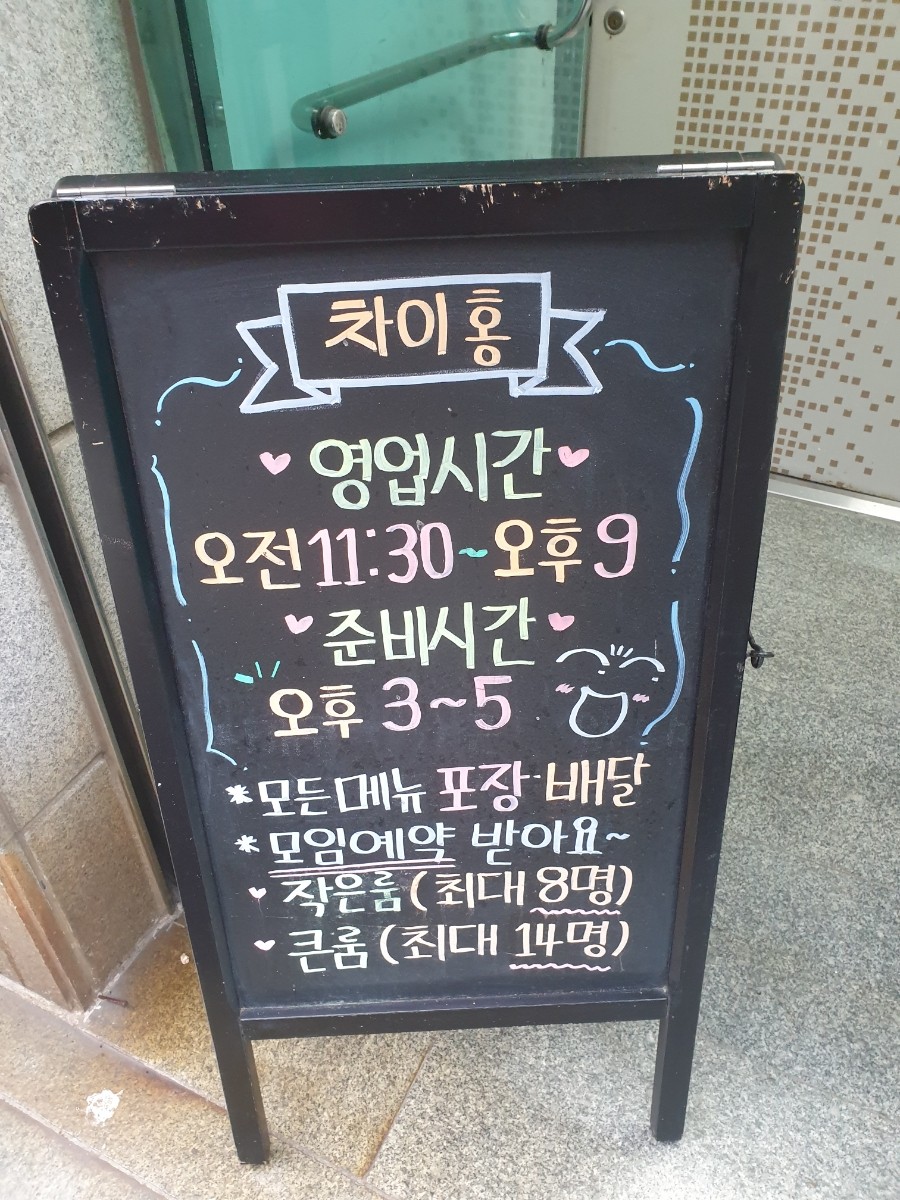 차이홍
영업시간
오전11:30~오후9
준비시간
오후 3~5
*모든메뉴 포장·배달
*모임예약 받아요~
작은룸(최대 8명)
큰룸(최대 14명)